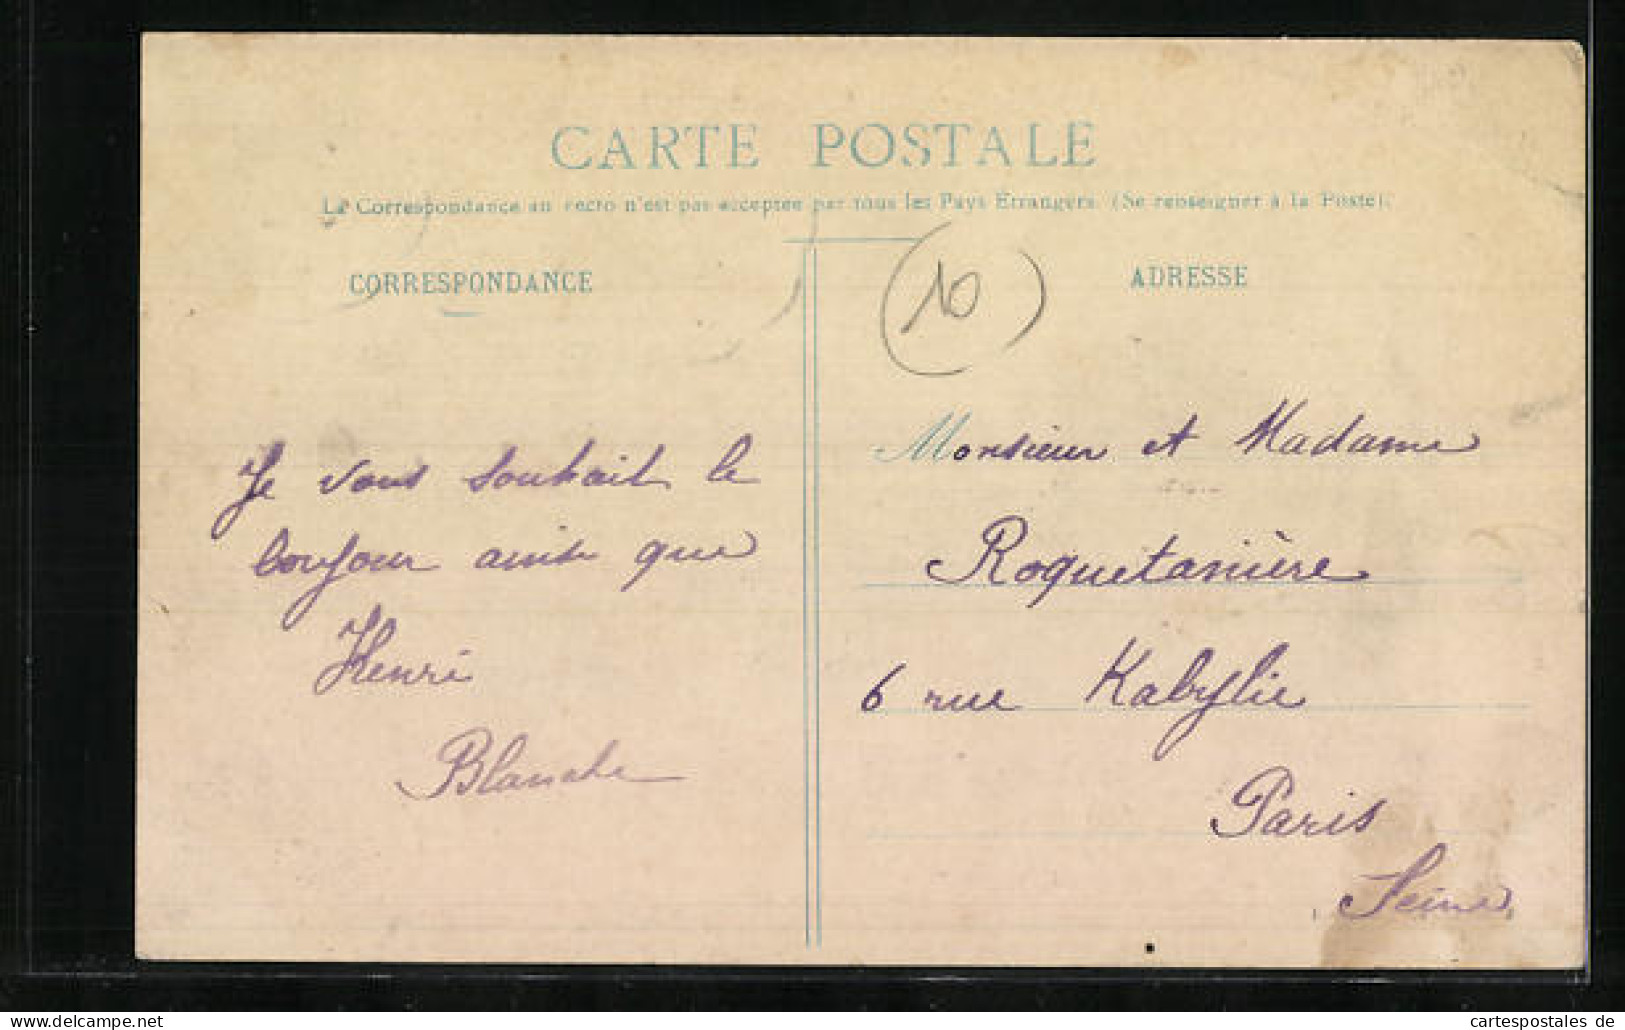 CARTE POSTALE
La Correspondance au recto n'est pas acceptée par tous les Pays Etrangers. (Se renseigner à la Poste).
CORRESPONDANCE
Je vous souhait le
bonjour ainsi que
Henri
Blanche
ADRESSE
10
Monsieur et Madame
Roquetanière
6 rue Kabylie
Paris
Seine
www.oldthing.com
cartespostales de